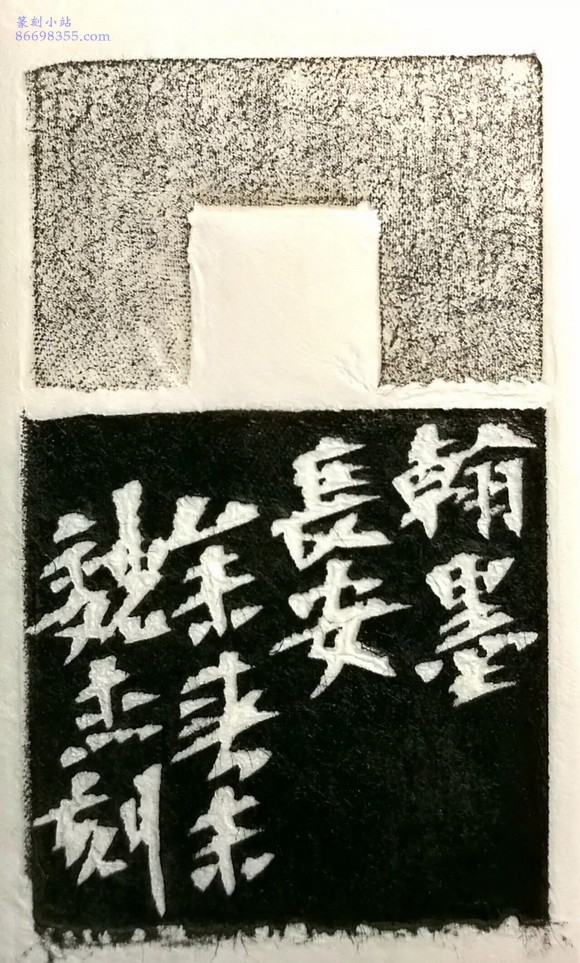 篆刻小站
86698355.com
翰墨
長安
乙未春末
魏杰刻